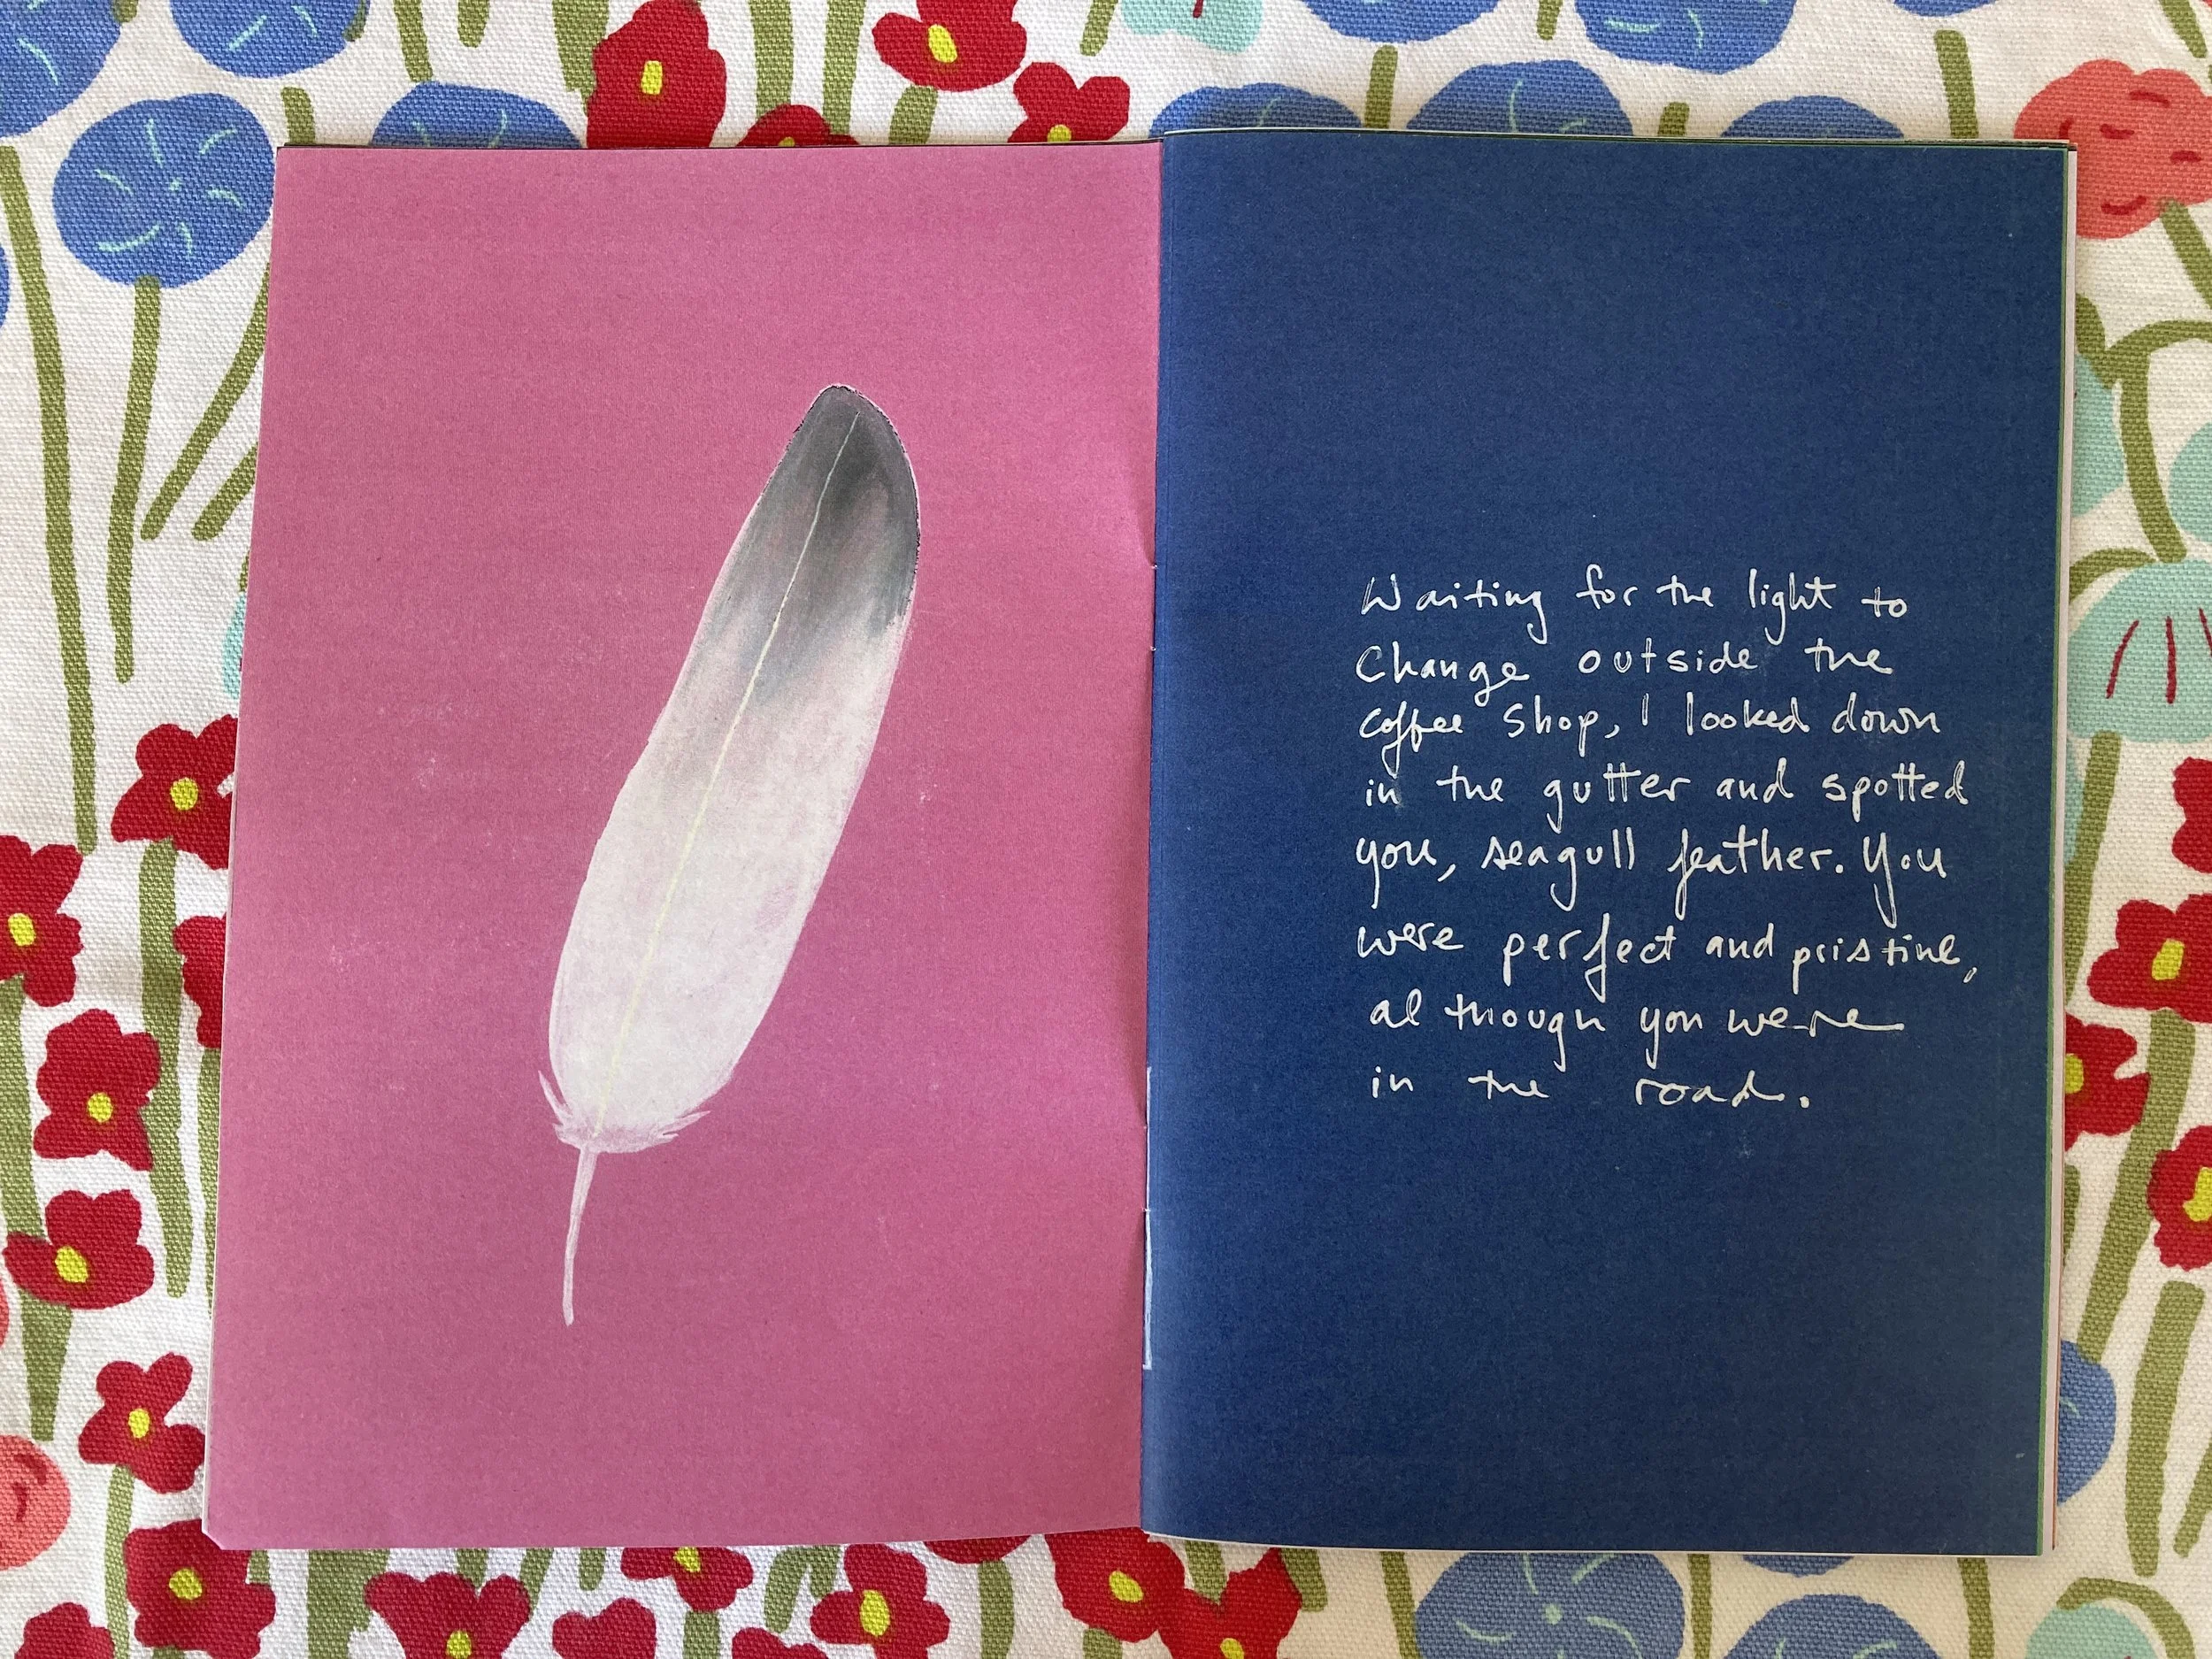 Waiting for the light to
Change outside the
coffee shop, I looked down
in the gutter and spotted
you, seagull feather. You
were perfect and pristine,
although you were
in the road.